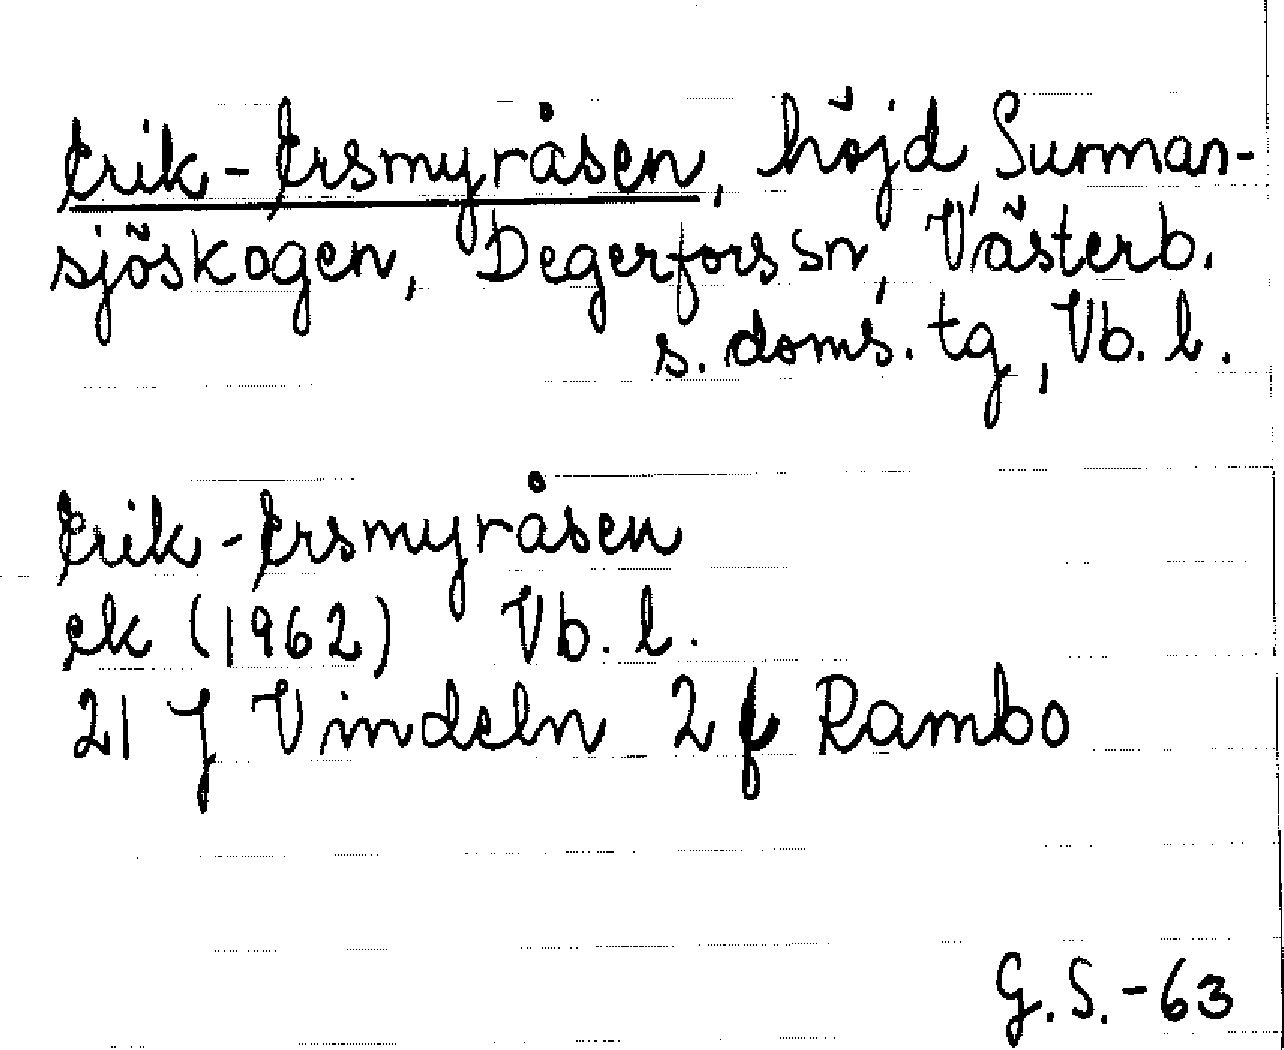 Erik-Ersmyråsen, höjd, Surman-
sjöskogen, Degerfors sn, Västerb.
s. doms. tg, Vb. l.
Erik-Ersmyråsen
ek (1962) Vb. l.
21 J Vindeln 2 f Rambo
G.S.-63